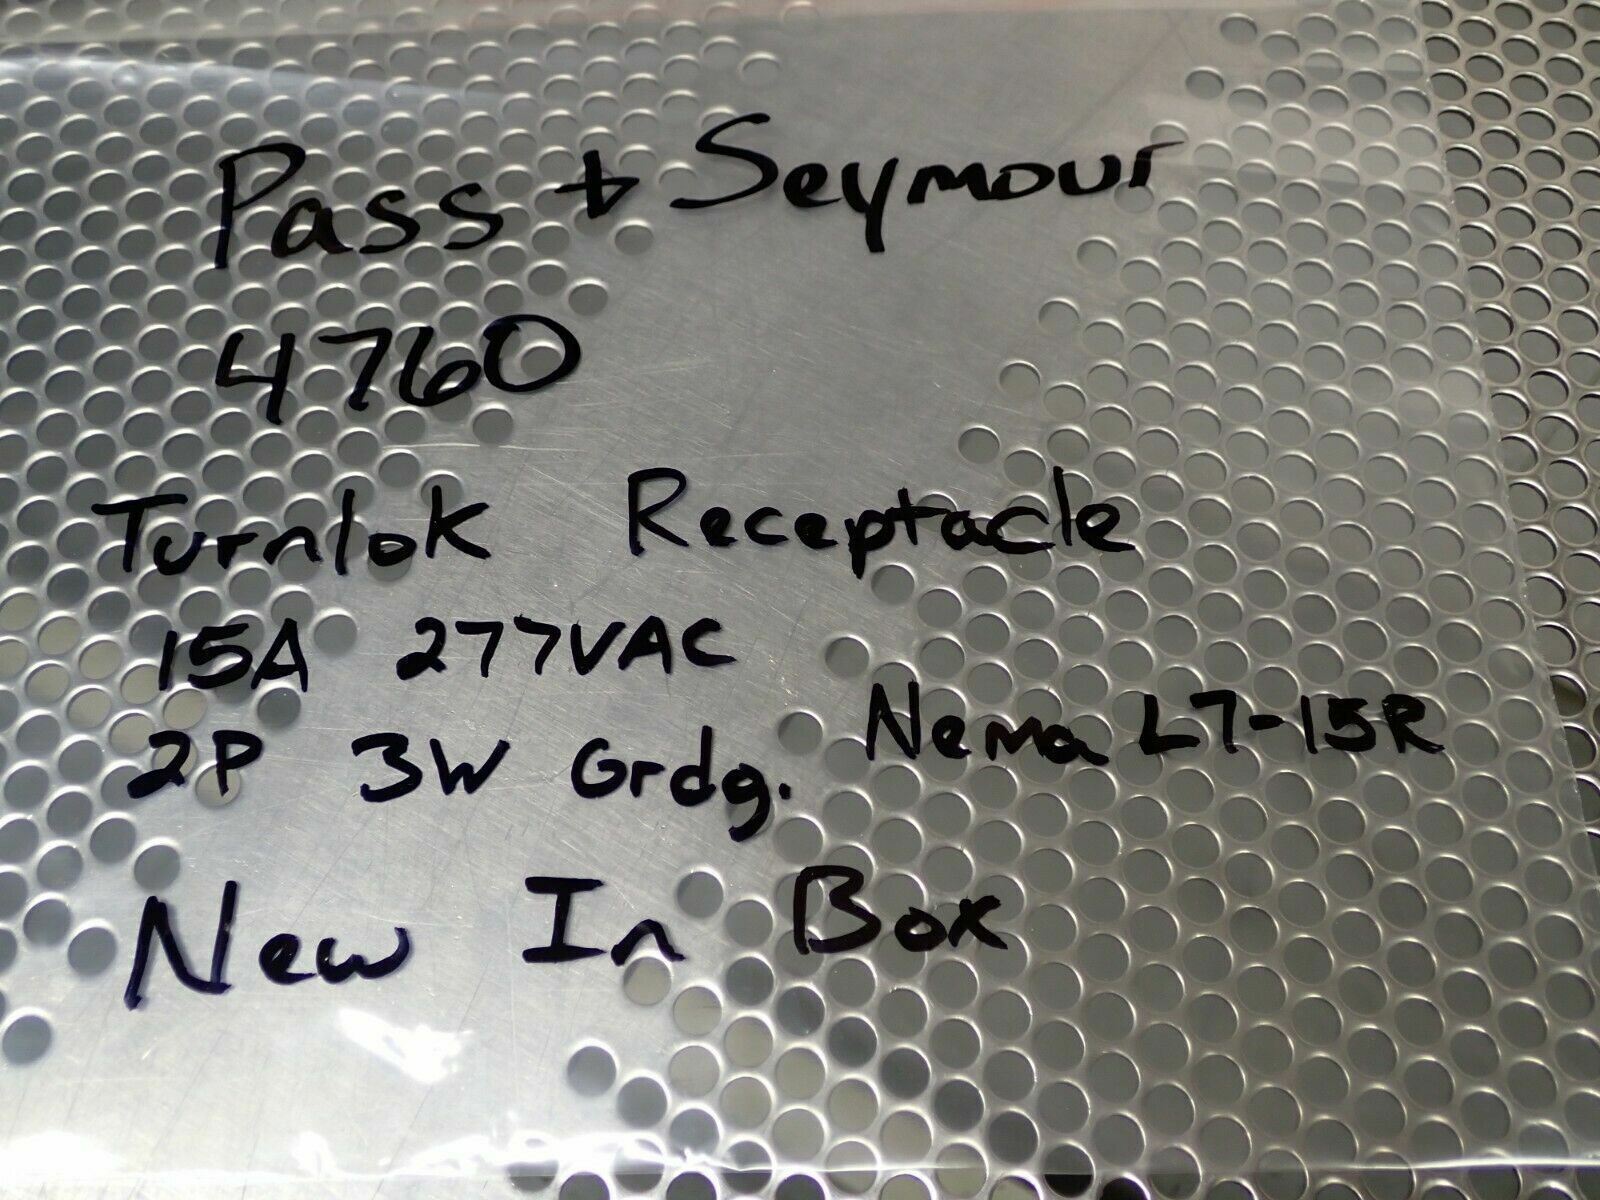 Pass + Seymour
4760
Turnlok Receptacle
15A 277VAC
2P 3W Grdg. Nema L7-15R
New In Box